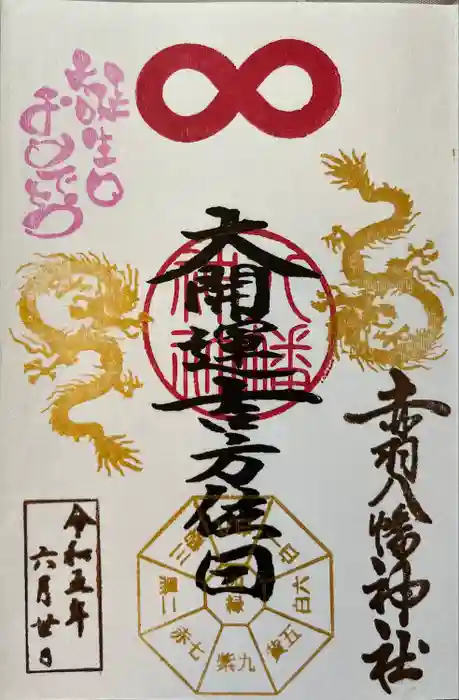 お誕生日
おめでとう
大開運吉方位回
八幡
神社
赤羽八幡神社
令和五年
六月廿日
八白
一白
六白
五黄
九紫
七赤
二黒
三碧
四緑